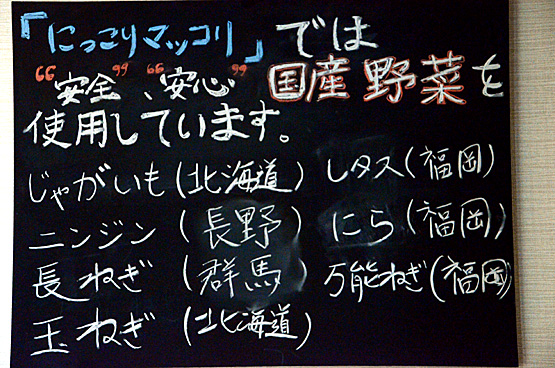 「にっこりマッコリ」では
“安全”、“安心” 国産野菜を
使用しています。
じゃがいも(北海道) レタス(福岡)
ニンジン(長野) にら(福岡)
長ねぎ(群馬) 万能ねぎ(福岡)
玉ねぎ(北海道)